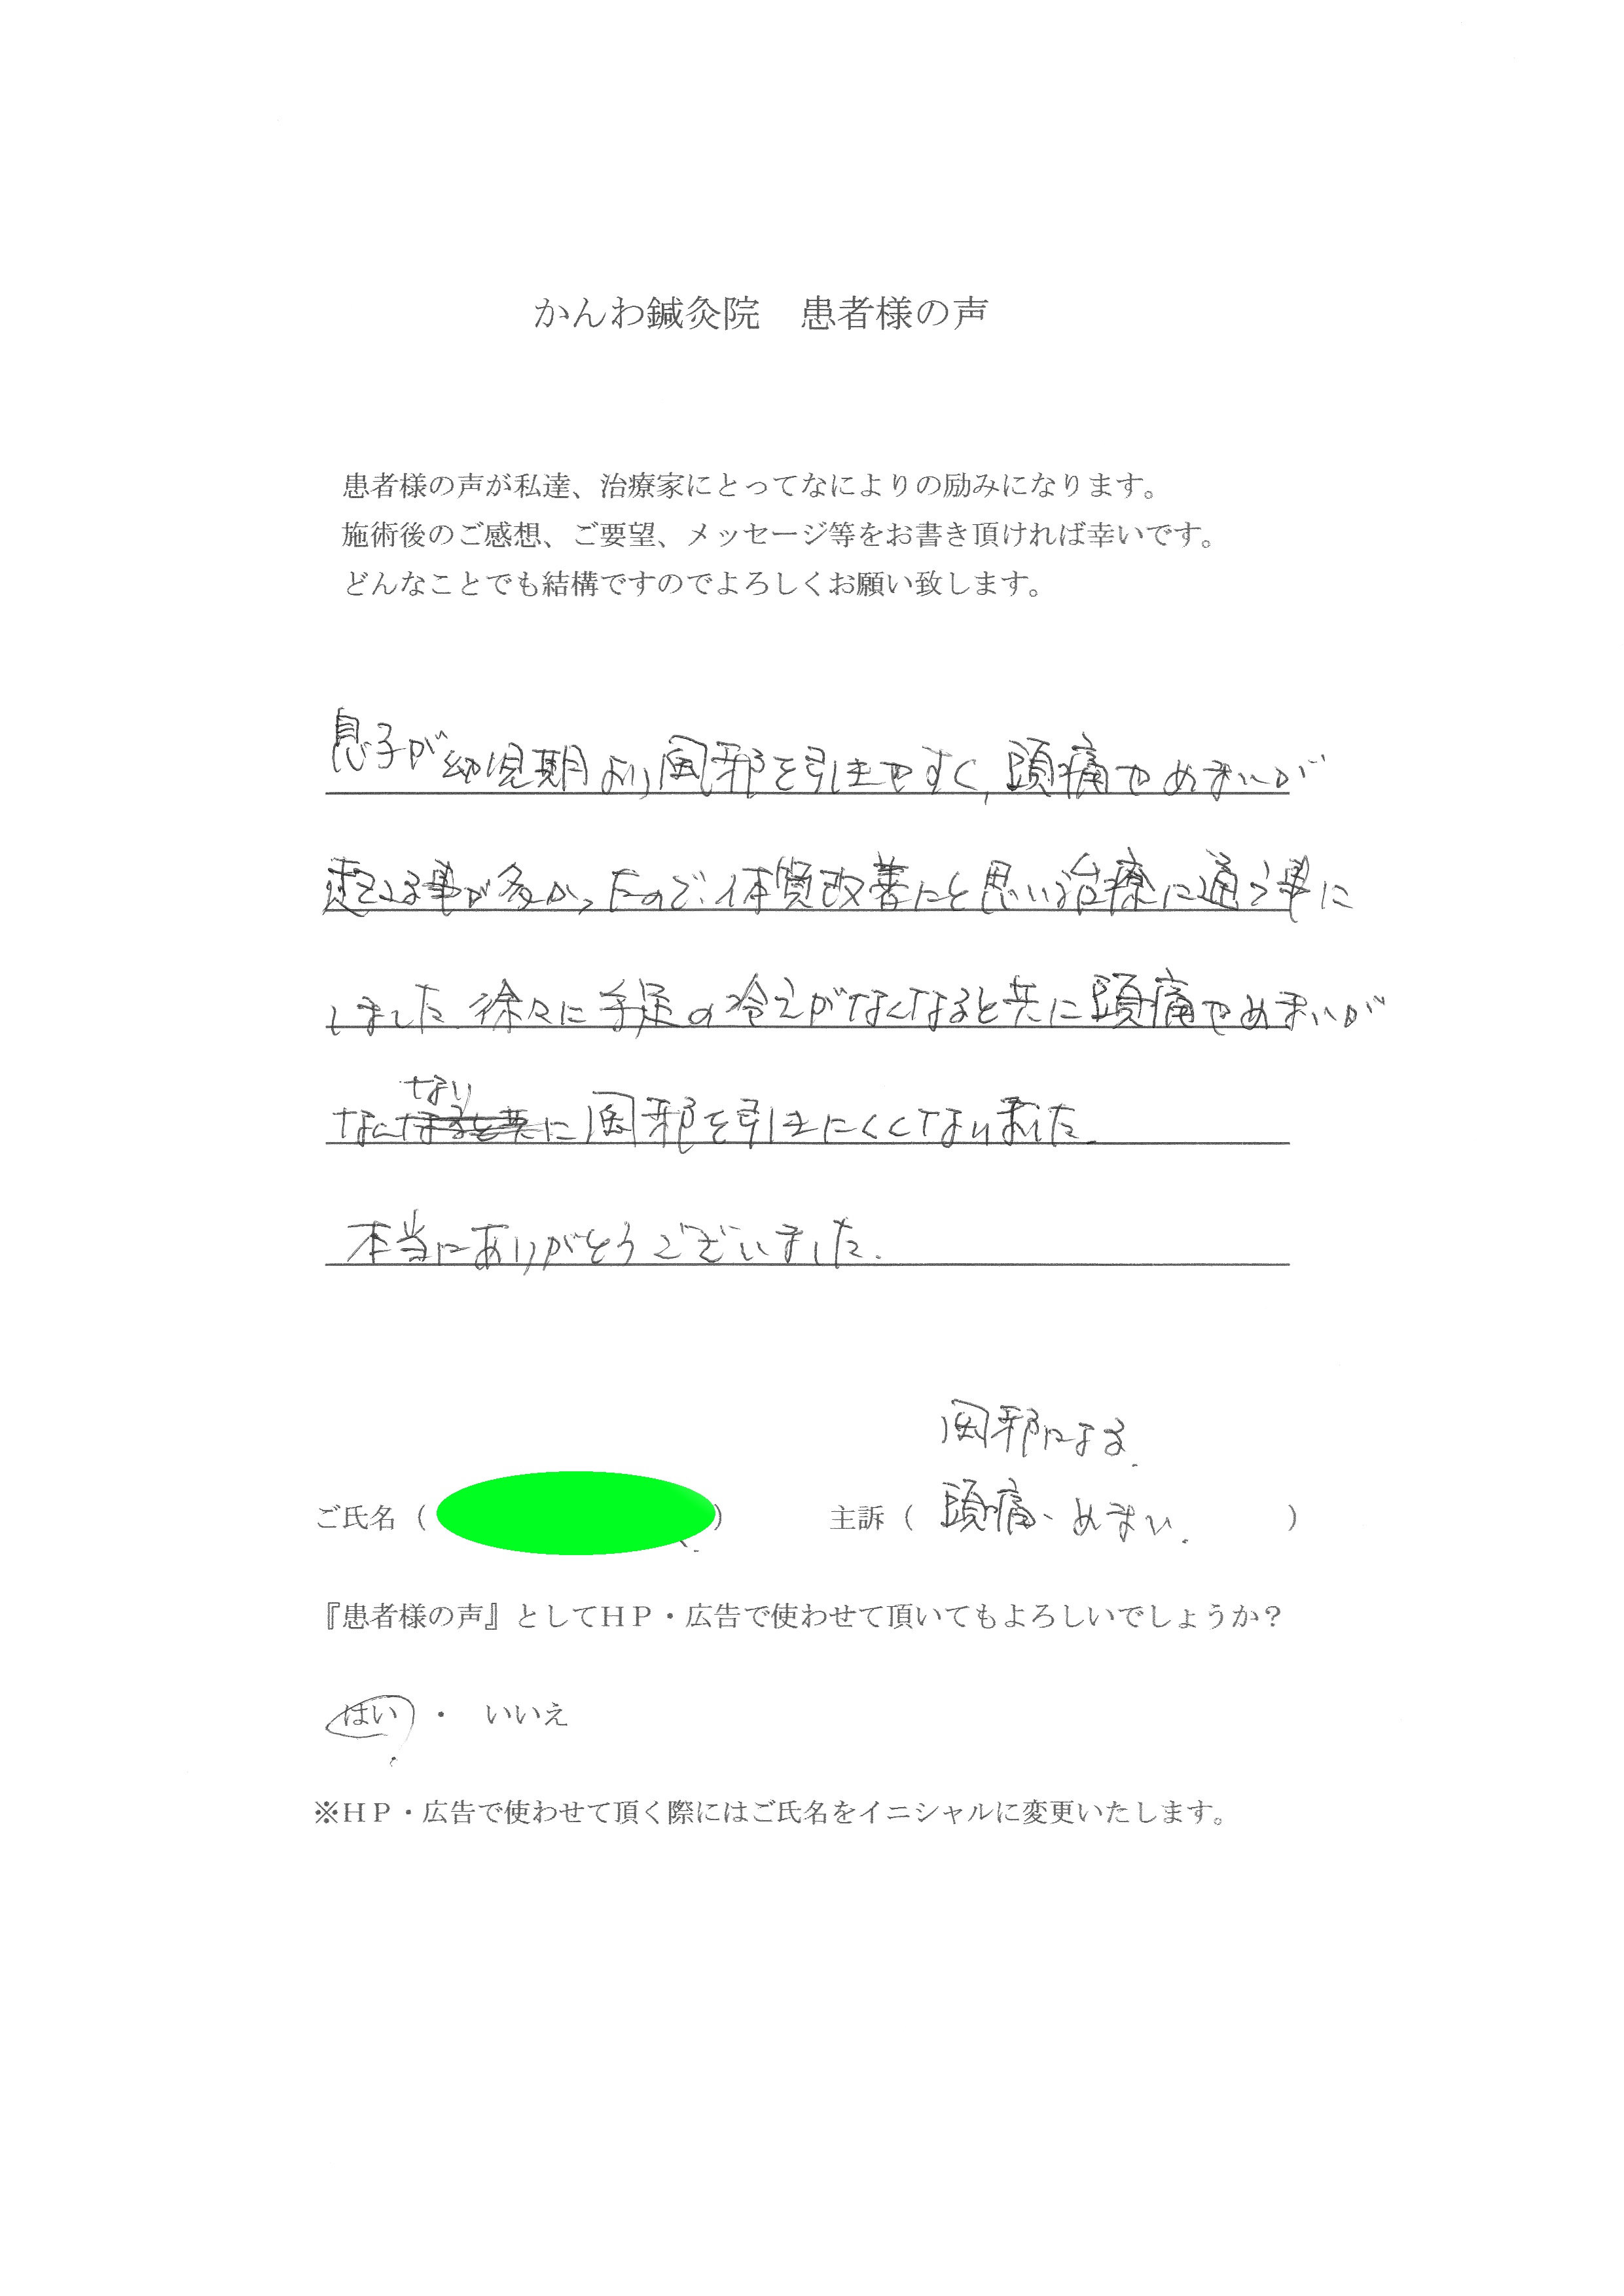 かんわ鍼灸院　患者様の声
患者様の声が私達、治療家にとってなによりの励みになります。
施術後のご感想、ご要望、メッセージ等をお書き頂ければ幸いです。
どんなことでも結構ですのでよろしくお願い致します。
息子が幼児期より風邪を引きやすく、頭痛やめまいが
起こる事が多かったので、体質改善にと思い治療に通う事に
しました。徐々に手足の冷えがなくなると共に頭痛やめまいが
なり
なくなるると共に風邪を引きにくくなりました。
本当にありがとうございました。
風邪による
ご氏名（　）　主訴（頭痛・めまい　）
『患者様の声』としてＨＰ・広告で使わせて頂いてもよろしいでしょうか？
はい ・ いいえ
※ＨＰ・広告で使わせて頂く際にはご氏名をイニシャルに変更いたします。